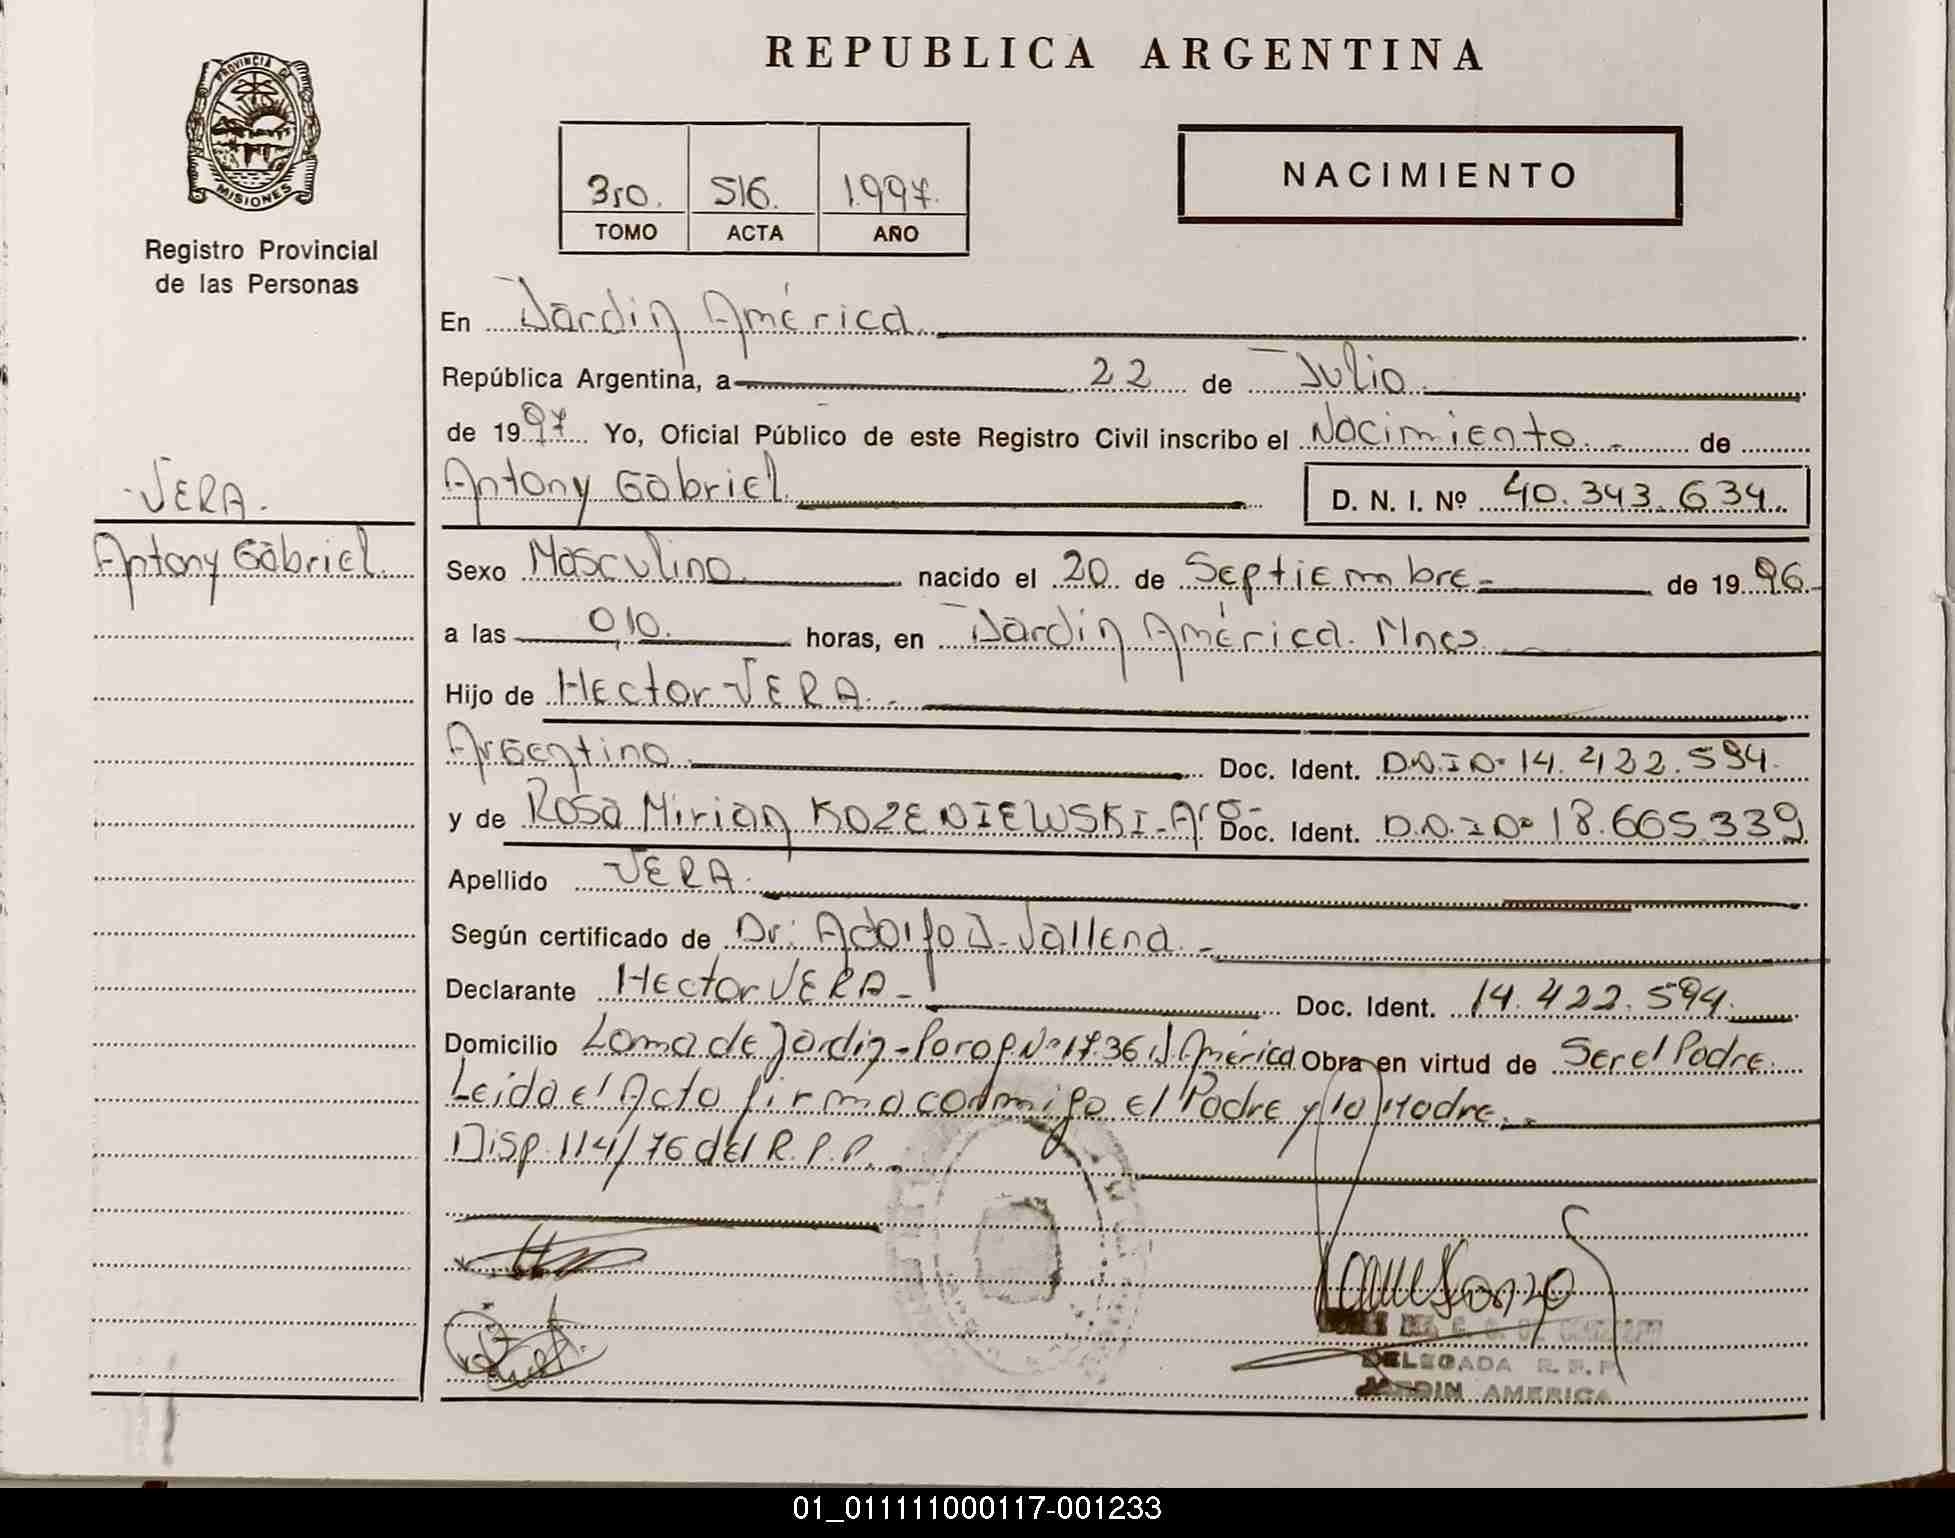 REPUBLICA ARGENTINA
PROVINCIA DE
MISIONES
Registro Provincial
de las Personas
3ro. 516. 1.997.
TOMO ACTA AÑO
NACIMIENTO
En Jardín América.
República Argentina, a 22 de Julio
de 1997 Yo, Oficial Público de este Registro Civil inscribo el Nacimiento.- de
VERA.
Antony Gabriel
Antony Gabriel. D. N. I. Nº 40.343.634.
Sexo Masculino nacido el 20 de Septiembre- de 1996.
a las 0,10. horas, en Jardín América. Mnes.
Hijo de Hector VERA.-
Argentino. Doc. Ident. D.N.I Nº 14.422.594.
y de Rosa Mirian KOZENIEWSKI-Arg- Doc. Ident. D.N.I Nº 18.665.339
Apellido VERA.
Según certificado de Dr. Adolfo J. Vallena.-
Declarante Hector VERA- Doc. Ident. 14.422.594.
Domicilio Loma de Jardín-Parap Nº 1736 J. América Obra en virtud de Ser el Padre.
Leida el Acta firma conmigo el Padre y la Madre.-
Disp. 114/76 del R.P.P.
DELEGADA R. P. P.
JARDIN AMERICA
01_011111000117-001233